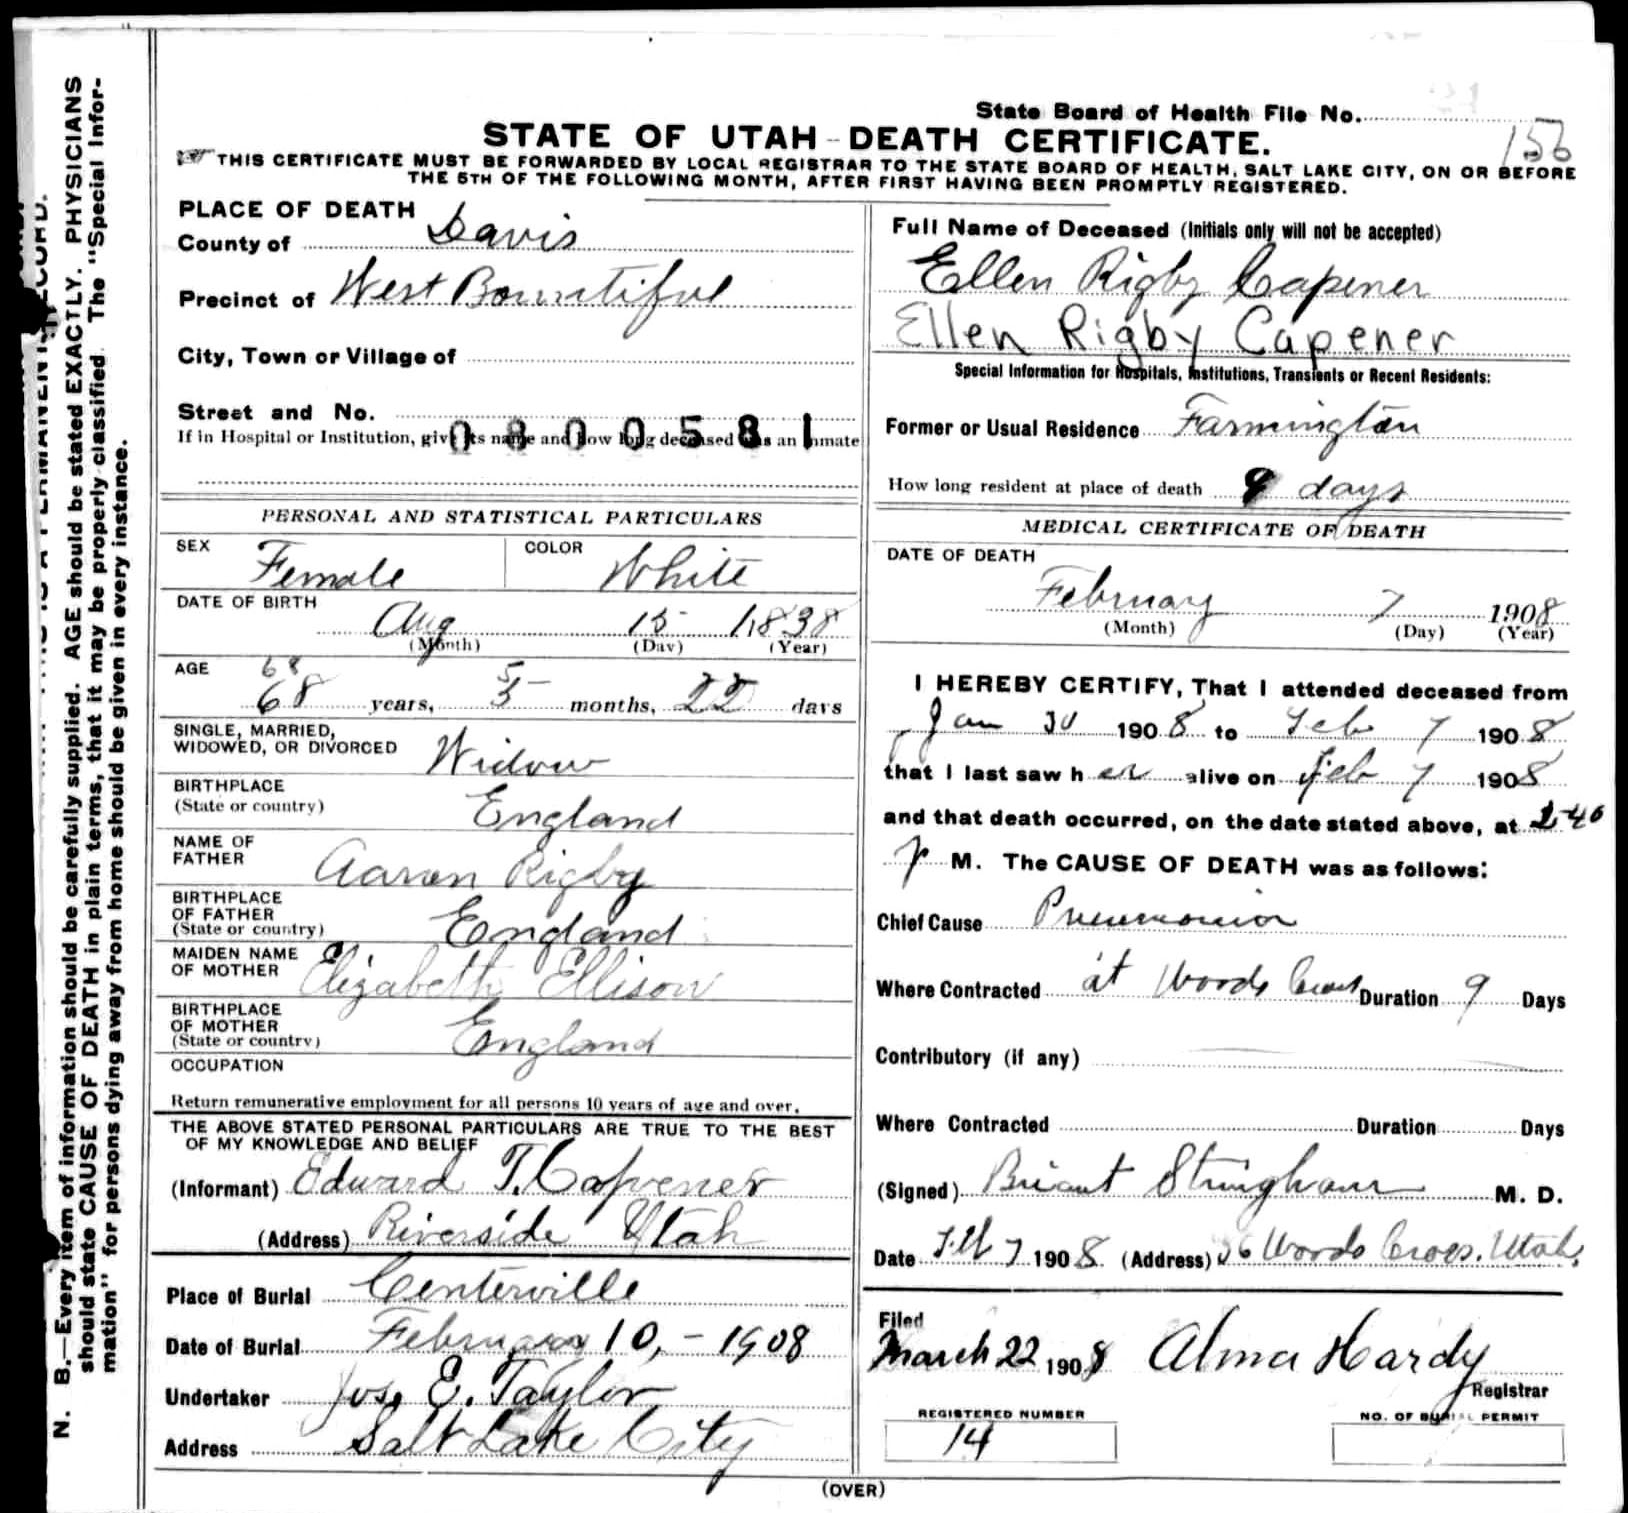 State Board of Health File No.
156
STATE OF UTAH - DEATH CERTIFICATE.
THIS CERTIFICATE MUST BE FORWARDED BY LOCAL REGISTRAR TO THE STATE BOARD OF HEALTH, SALT LAKE CITY, ON OR BEFORE
THE 5TH OF THE FOLLOWING MONTH, AFTER FIRST HAVING BEEN PROMPTLY REGISTERED.
N. B.—Every item of information should be carefully supplied. AGE should be stated EXACTLY. PHYSICIANS
should state CAUSE OF DEATH in plain terms, that it may be properly classified. The "Special Infor-
mation" for persons dying away from home should be given in every instance.
PLACE OF DEATH
County of Davis
Precinct of West Bountiful
City, Town or Village of
Street and No.
0800581
If in Hospital or Institution, give its name and how long deceased was an inmate
PERSONAL AND STATISTICAL PARTICULARS
SEX Female COLOR White
DATE OF BIRTH
Aug 15 1838
(Month) (Day) (Year)
AGE 68 5
68 years, 5 months, 22 days
SINGLE, MARRIED,
WIDOWED, OR DIVORCED Widow
BIRTHPLACE
(State or country) England
NAME OF
FATHER Aaron Rigby
BIRTHPLACE
OF FATHER
(State or country) England
MAIDEN NAME
OF MOTHER Elizabeth Ellison
BIRTHPLACE
OF MOTHER
(State or country) England
OCCUPATION
Return remunerative employment for all persons 10 years of age and over.
THE ABOVE STATED PERSONAL PARTICULARS ARE TRUE TO THE BEST
OF MY KNOWLEDGE AND BELIEF
(Informant) Edward T. Capener
(Address) Riverside Utah
Place of Burial Centerville
Date of Burial February 10, - 1908
Undertaker Jos. E. Taylor
Address Salt Lake City
Full Name of Deceased (Initials only will not be accepted)
Ellen Rigby Capener
Ellen Rigby Capener
Special Information for Hospitals, Institutions, Transients or Recent Residents:
Former or Usual Residence Farmington
How long resident at place of death 9 days
MEDICAL CERTIFICATE OF DEATH
DATE OF DEATH
February 7 1908
(Month) (Day) (Year)
I HEREBY CERTIFY, That I attended deceased from
Jan 30 1908 to Feb 7 1908
that I last saw her alive on Feb 7 1908
and that death occurred, on the date stated above, at 2-40
p M. The CAUSE OF DEATH was as follows:
Chief Cause Pneumonia
Where Contracted at Woods Cross Duration 9 Days
Contributory (if any)
Where Contracted Duration Days
(Signed) Briant Stringham M. D.
Date Feb 7 1908 (Address) Woods Cross. Utah,
Filed
March 22 1908 Alma Hardy
Registrar
REGISTERED NUMBER
14
NO. OF BURIAL PERMIT
(OVER)